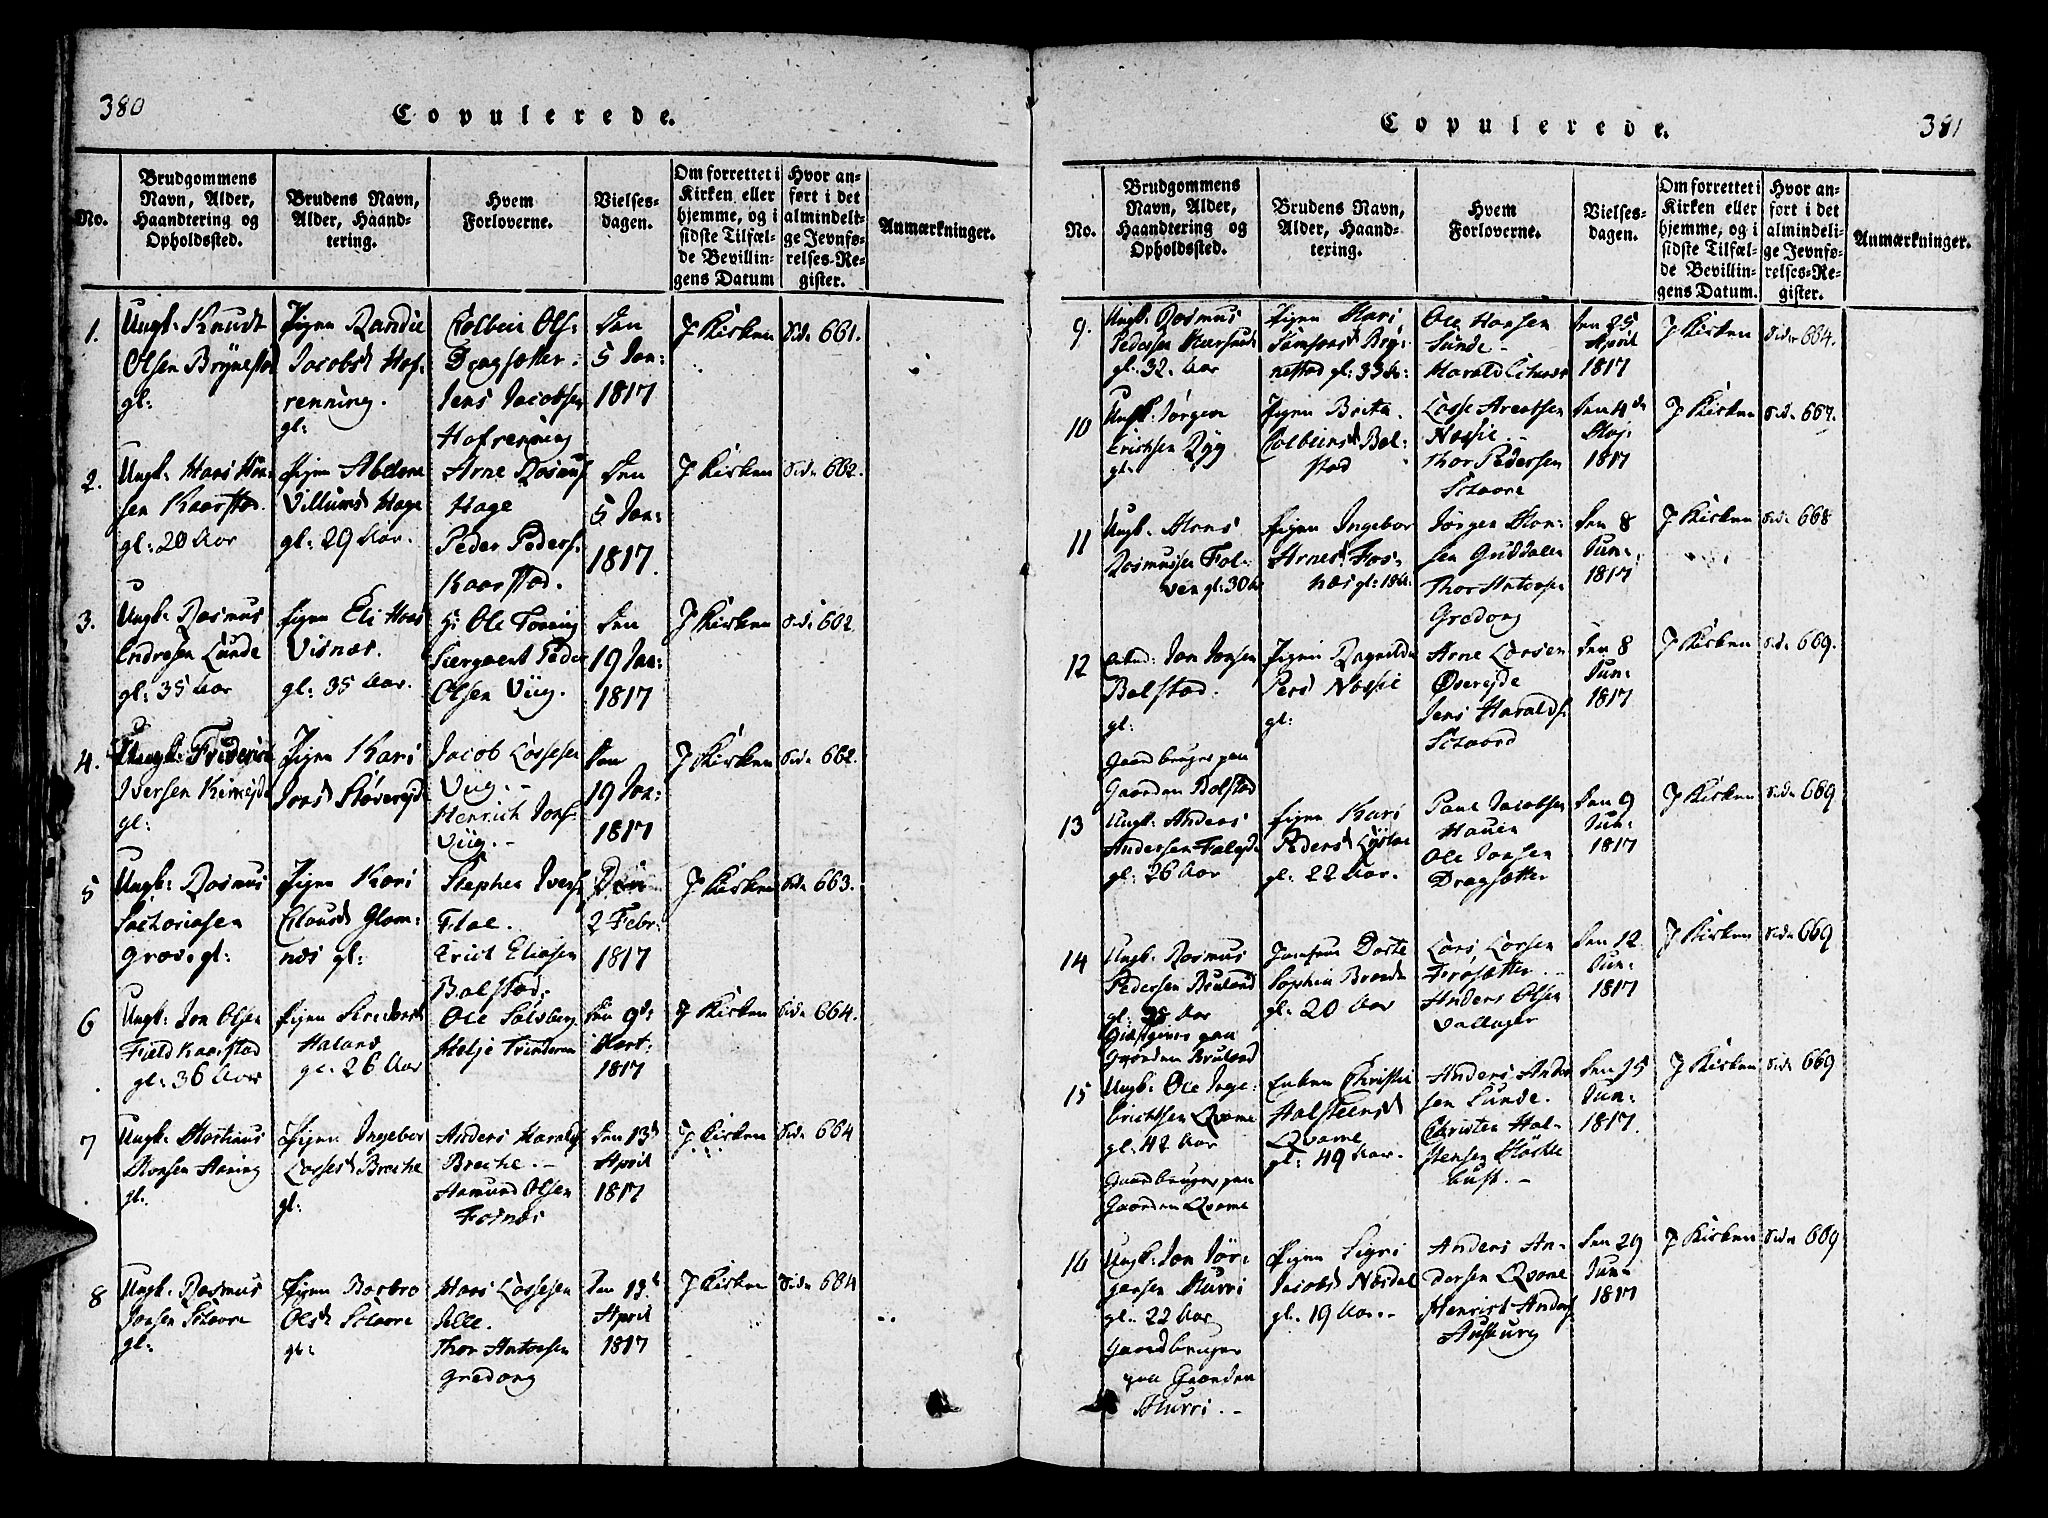 380
Copulerede.
No.
Brudgommens Navn, Alder, Haandtering og Opholdssted.
Brudens Navn, Alder, Haandtering.
Hvem Forloverne.
Vielsesdagen.
Om forrettet i Kirken eller hjemme, og i sidste Tilfælde Bevillingens Datum
Hvor anført i det almindelige Jevnførelses-Register.
Anmærkninger.
1.
Ungk: Knudt
Olsen Brynestad
gl:
Pigen Randie
Jacobsd Hof-
renning.
gl:
Colbein Ols:
Dragsætter
Jens Jacobsen
Hofrenning
Den
5 Jan:
1817
J Kirken
Side 661.
2.
Ungk: Hans Han-
sen Kaarstad
gl: 20 Aar
Pigen Abelone
Villumsd Hage
gl: 29 Aar.
Arne Rasmus
Hage
Peder Peders:
Kaarstad.
Den
5 Jan:
1817.
J Kirken
Side 662.
3.
Ungk: Rasmus
Endresen Lunde
gl: 35 Aar
Pigen Eli Hans
Visnæs.
gl: 35 Aar.
Hr Ole Toning
Siergeant Peder
Olsen Viig.
Den
19 Jan:
1817
J Kirken
Side 662.
4.
Ungk: Friderich
Iversen Kirkejde
gl:
Pigen Kari
Jonsd Støverejd
Jacob Lassesen
Viig.-
Henrich Jons:
Viig.-
Den
19 Jan:
1817
J Kirken
Side 662.
5
Ungk: Rasmus
Sachariasen
Grov. gl:
Pigen Kari
Clausd Glom-
næs gl:
Stephen Ivers:
Flae.
Erick Eliasen
Balstad.
Den
2 Febr:
1817
J Kirken
Side 663.
6
Ungk: Jon Olsen
Field Kaarstad
gl: 36 Aar
Pigen Siri Jonsd
Haland
gl: 26 Aar
Ole Solsberg
Helje Tvinderen
Den 9de
Mart:
1817
J Kirken
Side 664.
7
Ungk: Mathias
Monsen Aaning
gl:
Pigen Ingebor
Lassesd Breche
gl:
Anders Harals:
Breche.-
Aamund Olsen
Fosnæs
Den 13d
April
1817
J Kirken
Side 664
8
Ungk: Rasmus
Jonsen Schaare
gl:
Pigen Barbro
Olsd Schaare
gl:
Hans Lassesen
Thor Antonsen
Gredong
Den 13d
April
1817
J Kirken
Side 664
381
Copulerede.
No.
Brudgommens Navn, Alder, Haandtering og Opholdssted.
Brudens Navn, Alder, Haandtering.
Hvem Forloverne.
Vielsesdagen.
Om forrettet i Kirken eller hjemme, og i sidste Tilfælde Bevillingens Datum.
Hvor anført i det almindelige Jevnførelses-Register.
Anmærkninger.
9.
Ungk: Rasmus
Pedersen
gl. 32. Aar
Pigen Mari
Samsonsd Bry-
nestad gl: 33 A:
Ole Hansen
Sunde-
Harald
Den 25
April
1817
J Kirken
Side 664.
10
Ungk: Jørgen
Erichsen Ryg
gl:
Pigen Brita
Colbeinsd Bal-
stad
Lasse Arentsen
Næssie.-
Thor Pedersen
Schaare
Den 4de
Maj:
1817
J Kirken
Side 667.
11
Ungk: Hans
Rasmussen Fal-
ven gl: 30 A
Pigen Ingebor
Arnesd Fos-
næs gl: 18 A:
Jørgen Han-
sen Guddalen
Thor Antons:
Gredong
Den 8
Jun:
1817
J Kirken
Side 668
12
Jon Jonsen
Balstad.
gl:
Gaardbruger paa
Gaarden Balstad
Pigen Ragnilda
Persd Næssie
gl:
Arne Larsen
Øverejde
Jens Haralds:
Schaard
Den 8
Jun:
1817
J Kirken
Side 669.
13
Ungk: Anders
Andersen Falejde
gl: 26 Aar
Pigen Kari
Pedersd
gl: 22 Aar.
Paul Jacobsen
Hauen
Ole Jonsen
Dragsætter
Den 9
Jun:
1817
J Kirken
Side 669
14
Ungk: Rasmus
Pedersen Bruland
gl: 28 Aar
Giæstgiver paa
Gaarden Bruland
Jomfrue Dorte
Sophia Brandt
gl: 20 Aar
Lars Larsen
Frøsætter
Anders Olsen
Vallager
Den 12
Jun:
1817
J Kirken
Side 669
15
Ungk: Ole Inge-
brichtsen Qvame
gl: 42 Aar
Gaardbruger paa
Gaarden Qvame
Enken Christie
Halsteensd
Qvame
gl: 49 Aar.
Anders Ander-
sen Lunde.
Christen Hal-
stensen
Den 15
Jun:
1817.
J Kirken
Side 669
16
Ungk: Jon Jør-
gensen Murri
gl: 22 Aar
Gaardbruger
paa Gaarden
Murri.-
Pigen Sigri
Jacobsd Nørdal
gl: 19 Aar.-
Anders An-
dersen Qvame
Henrich Anders:
Ausburg
Den 29
Jun:
1817
J Kirken
Side 669